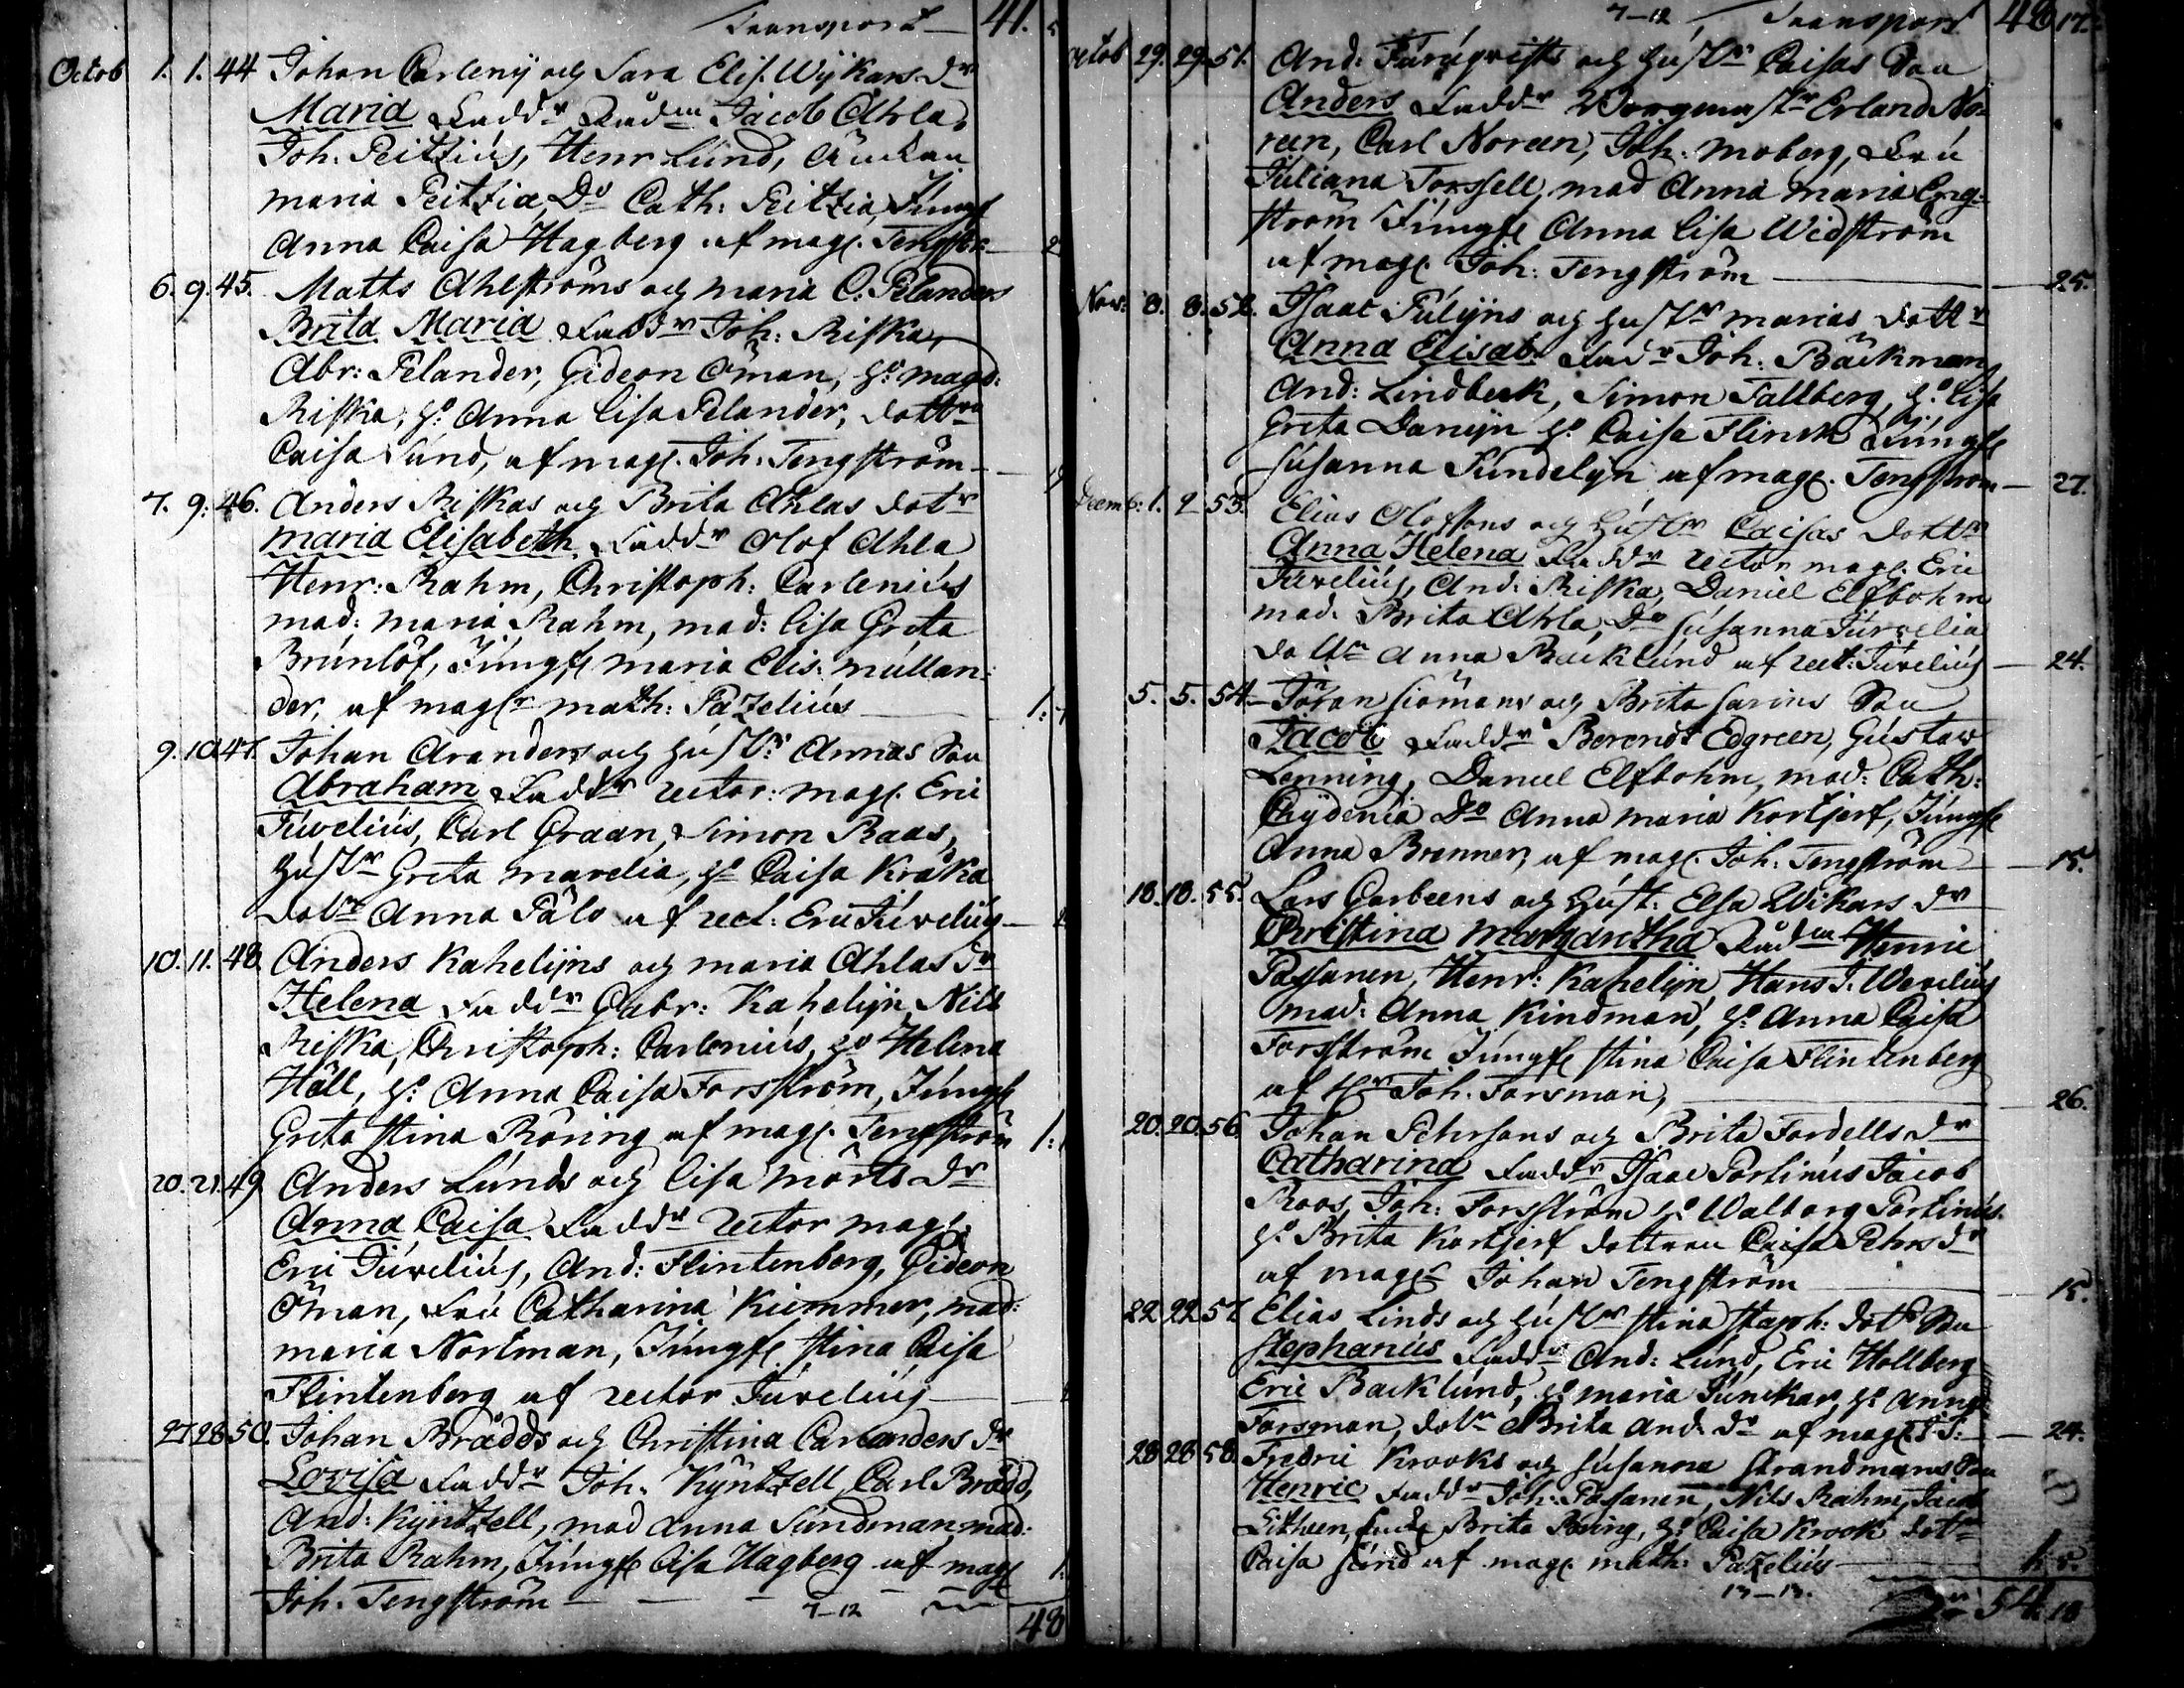 Transport — 41.
Octob 1. 1. 44 Johan Carlenij och Sara Elis. Wijkars dr
Maria Faddr Rådm Jacob Ahla,
Joh. Peitzius, Henr Lund, Änckan
maria Peitzia, Do Cath: Peitzia, Jungf
Anna Caisa Hagberg af mag. Tengstr — 2
6. 9. 45. Matts Ahlströms och maria C. Pelanders
Brita Maria Faddr Joh: Riska,
Abr: Pelander, Gideon Öman, H: magd:
Riska, H: Anna Lisa Pelander, dottrn
Caisa Sund, af mag. Joh. Tengström —
7. 9. 46. Anders Riskas och Brita Ahlas dotr
maria Elisabeth Faddr Olof Ahla
Henr: Rahm, Christoph: Carlenius
mad: maria Rahm, mad: Lisa Greta
Brunlöf, Jungf maria Elis: mullan-
der, af magr math: Pazelius — 1:
9. 10. 47. Johan Aranders och Hustr: Annas Son
Abraham Faddr rector: mag. Eric
Juvelius, Carl Graan, Simon Raas,
Hustr Greta marelia, H: Caisa Kråka
dotr Anna Påls af rect: Eric Juvelius —
10. 11. 48. Anders Kahelijns och maria Ahlas dr
Helena Faddr Gabr: Kahelijn, Nils
Riska, Christoph: Carlenius, H: Helena
Häll, H: Anna Caisa Forsström, Jungf
Greta Stina Röring af mag. Tengström 1:
20. 21. 49 Anders Lunds och Lisa Mörts dr
Anna Caisa Faddr rector mag.
Eric Juvelius, And: Flintenberg, Gideon
Öman, Fru Catharina Kummer, mad:
maria Nortman, Jungf Stina Caisa
Flintenberg af rector Juvelius —
27 28 50. Johan Brådds och Christina Carlanders dr
Lovisa Faddr Joh. Kÿntzell, Carl Brådd,
And: Kÿntzell, mad Anna Sundman, mad:
Brita Rahm, Jungf Lisa Hagberg af mag 1:
Joh. Tengström — 7–12
48
7–12 Transport 48 17.
Octob 29. 29. 51. And: Turnqvists och Hustr Caisas Son
Anders Faddr Borgmästr Erland No-
reen, Carl Noreen, Joh: Moberg, Fru
Juliana Forssell, mad Anna Maria Eng-
ström Jungf Anna Lisa Widström
af mag. Joh: Tengström — 25.
Nov: 8. 8. 52. Isaac Julijns och Hustr marias dottr
Anna Elisab: Fadr Joh: Bäckman,
And: Lindbeck, Simon Fallberg, H: Lisa
Greta Danijn H: Caisa Flinck Jungf
Susanna Sundelijn af mag. Tengström — 27.
Decemb: 1. 2 53. Elias Olofsons och Hustr Caisas dottr
Anna Helena Faddr rector mag. Eric
Juvelius, And: Riska, Daniel Elfbohm
mad: Brita Ahla, Do Susanna Juvelia
dottr Anna Backlund af rect: Juvelius — 24.
5. 5. 54 — Jöran Siömans och Brita Sarins Son
Jacob Faddr Berendt Edgreen, Gustav
Lenning, Daniel Elfbohm, mad: Cath:
Chydenia Do Anna maria Kortjerf, Jungf
Anna Brenner, af mag. Joh. Tengström — 15.
18. 18. 55. Lars Garbeens och Hust: Elsa Wikars dr
Christina margaretha Rådm Henric
Passanen, Henr: Kahelijn Hans J. Wevelius
mad: Anna Kindman, H: Anna Caisa
Forsström Jungf Stina Caisa Flintenberg
af Hr Joh. Forsman, — 26.
20. 20. 56 Johan Pehrsons och Brita Fordells dr
Catharina Faddr Isaac Portinus Jacob
Roos, Joh: Forsström H: Walborg Portinus.
H: Brita Kortjerf dottren Caisa Pehrs dr
af magr Johan Tengström — 15.
22 22 57. Elias Linds och Hustr Stina Staph: dotr Son
Stephanus Faddr And: Lund, Eric Hollberg
Eric Backlund, H: maria Junckar, H: Anna
Forsman, dotr Brita And. dr af mag. J: T: — 24.
28 28 58. Fredric Krooks och Susanna Strandmans Son
Henric Faddr Joh: Passanen, Nils Rahm, Jacob
Litheen, Brita Röring, H: Caisa Krook dotr
Caisa Sund af mag. math: Pazelius
13–13.
54. 18